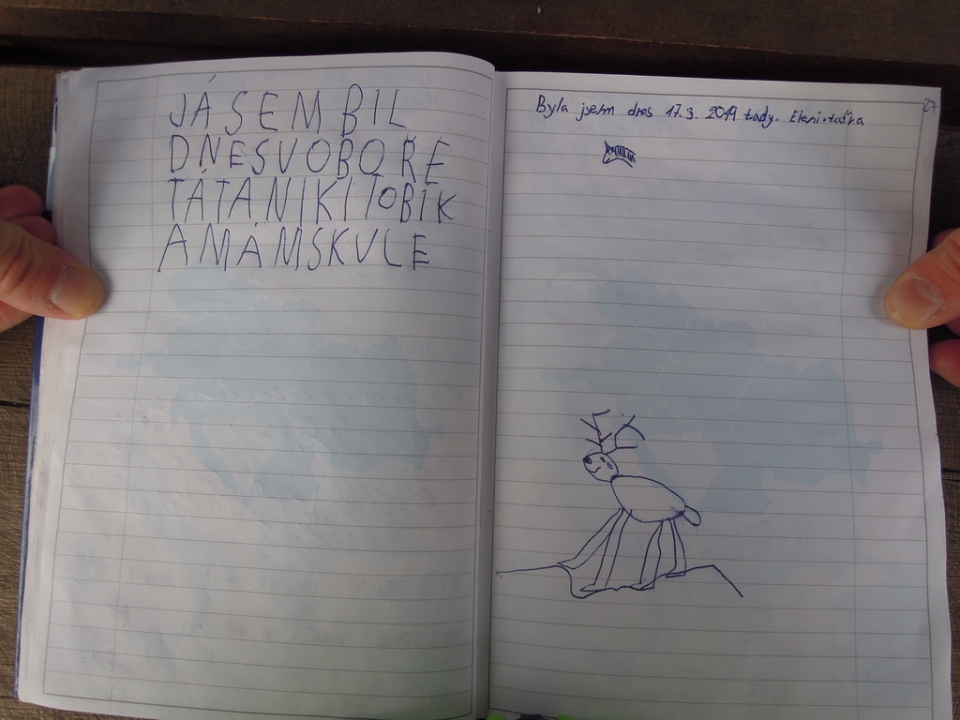 JÁ SEM BIL
DNES V OBOŘE
TÁTA NIKI TOBIK
A MÁM SKVLE
27
Byla jsem dnes 17.3. 2019 tady. Eleni+taťka